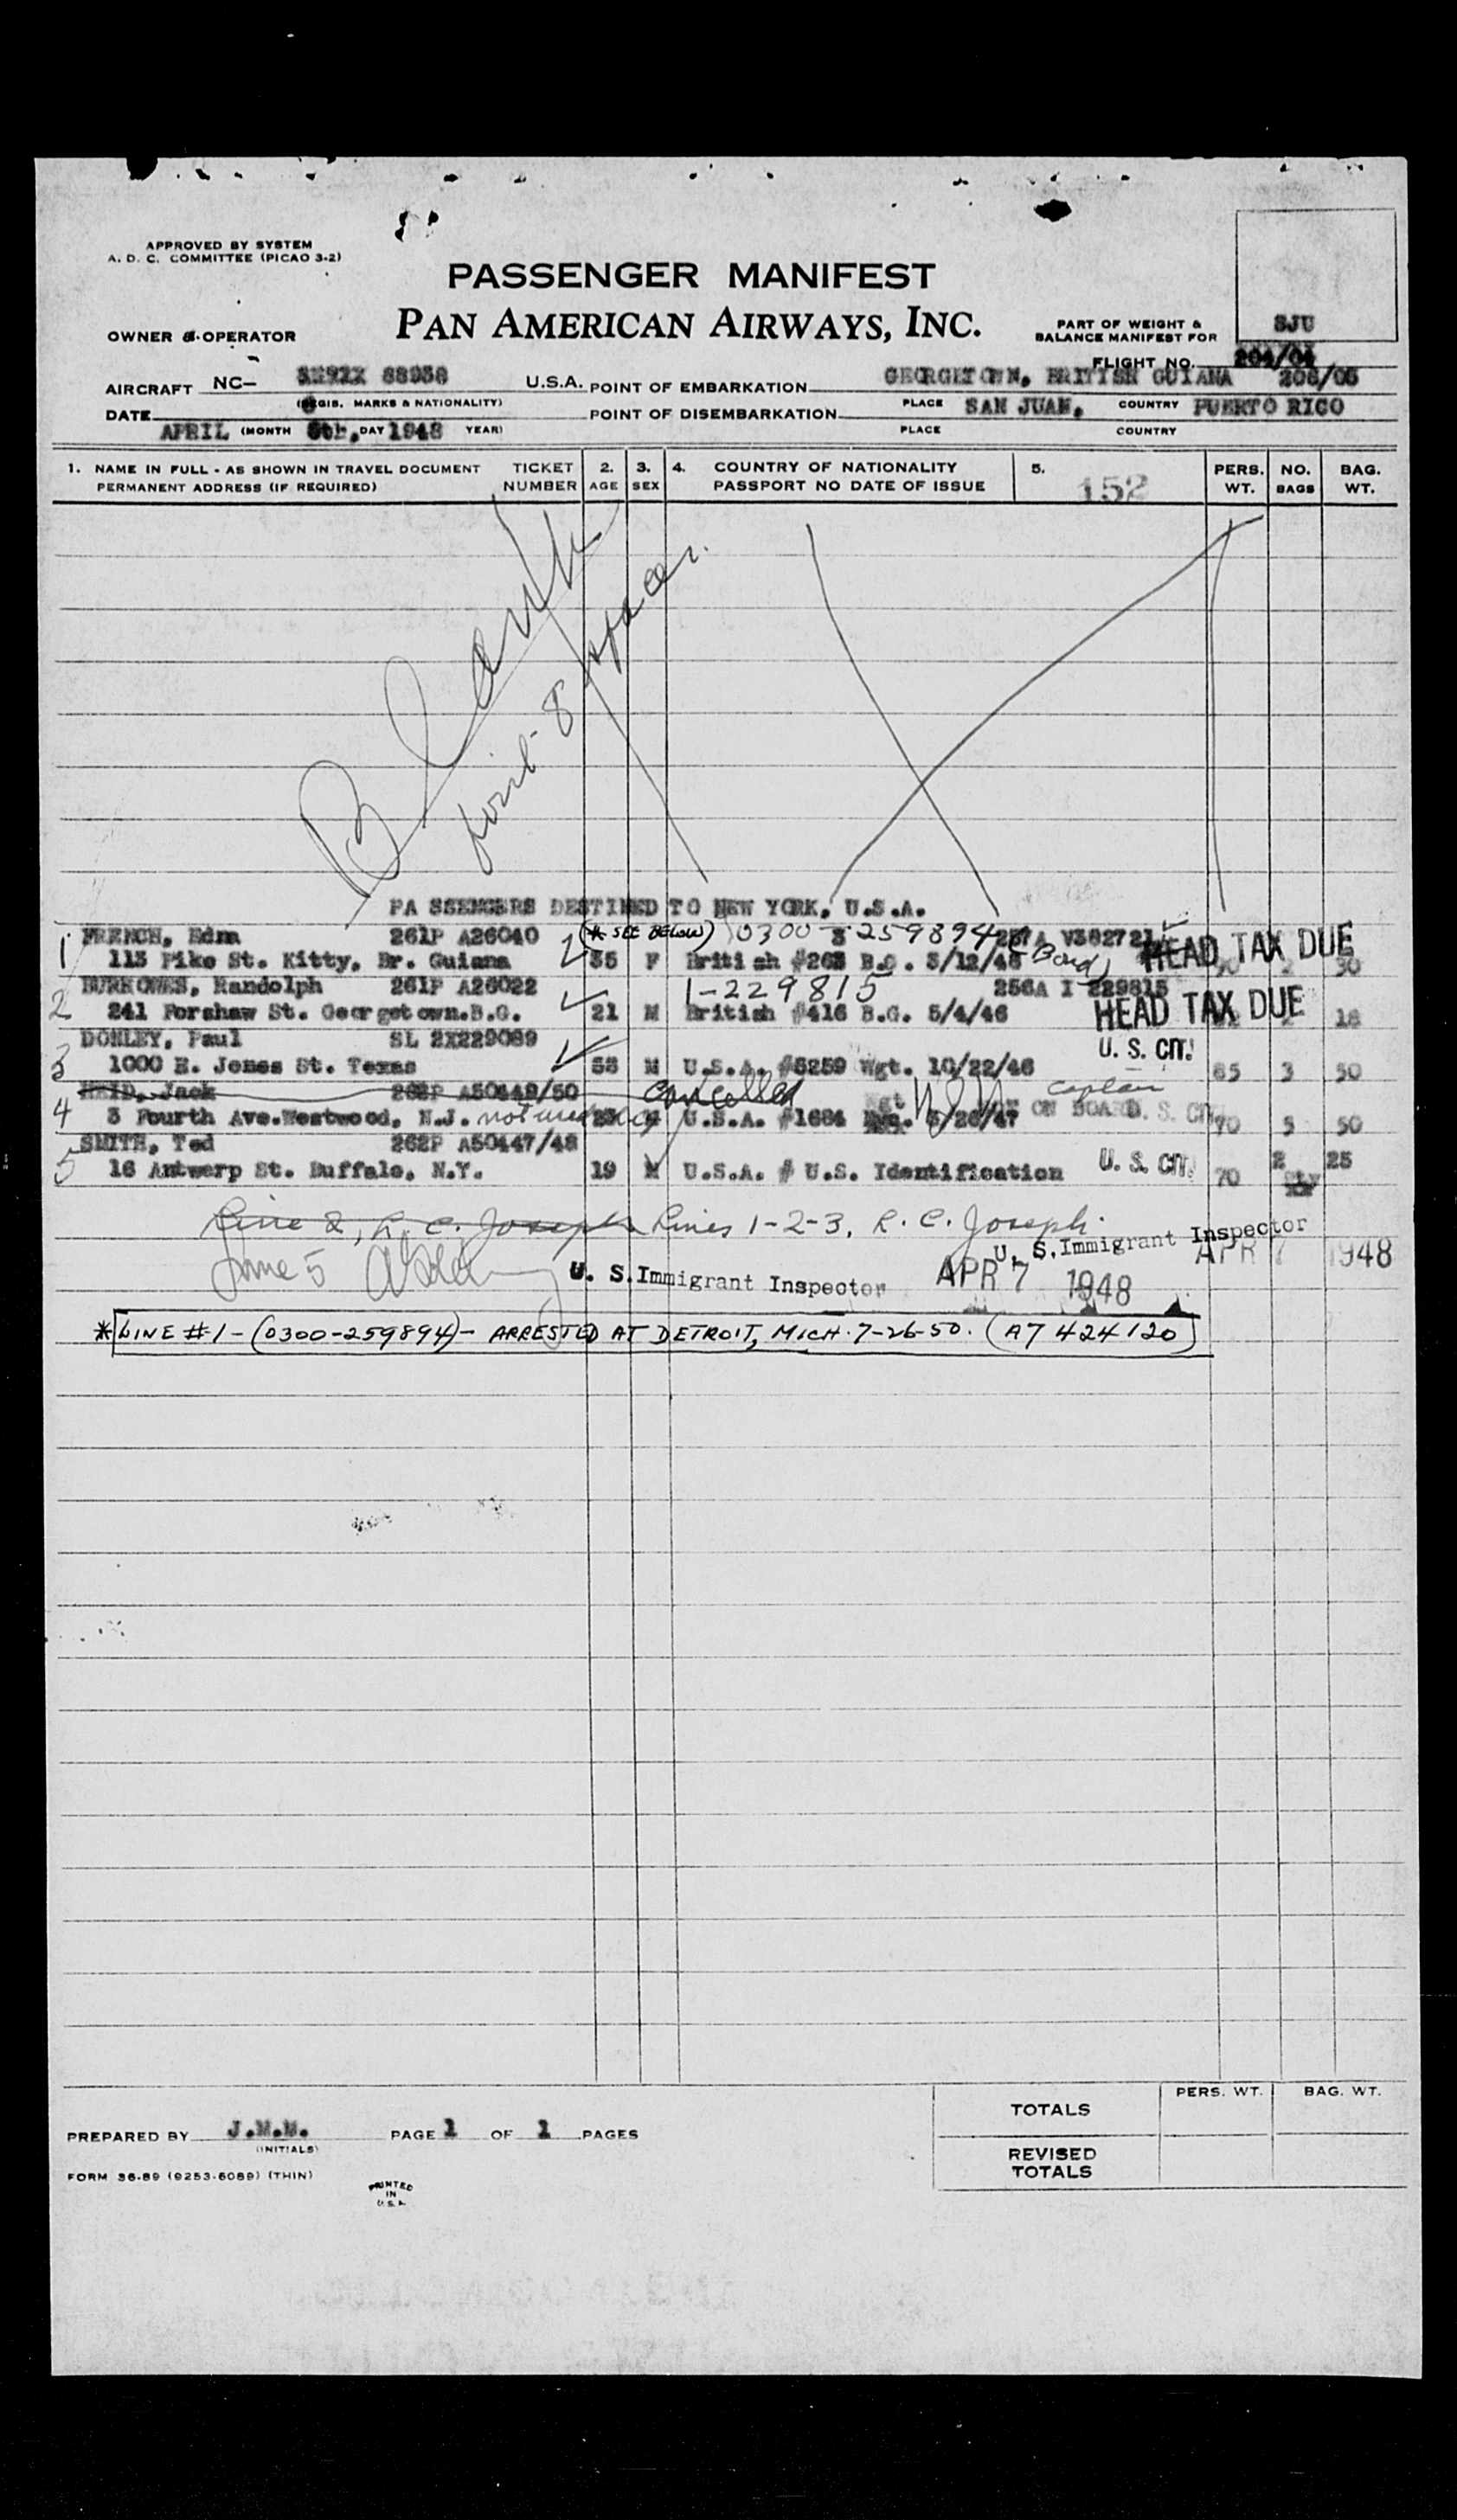 APPROVED BY SYSTEM
A. D. C. COMMITTEE (PICAO 3-2)
PASSENGER MANIFEST
PAN AMERICAN AIRWAYS, INC.
OWNER & OPERATOR
PART OF WEIGHT &
BALANCE MANIFEST FOR
SJU
FLIGHT NO. 204/04
AIRCRAFT NC- 88958 U.S.A. POINT OF EMBARKATION GEORGETOWN, BRITISH GUIANA 206/05
(REGIS. MARKS & NATIONALITY) PLACE SAN JUAN, COUNTRY PUERTO RICO
DATE POINT OF DISEMBARKATION
APRIL (MONTH DAY 1948 YEAR) PLACE COUNTRY
1. NAME IN FULL - AS SHOWN IN TRAVEL DOCUMENT TICKET 2. 3. 4. COUNTRY OF NATIONALITY 5. PERS. NO. BAG.
PERMANENT ADDRESS (IF REQUIRED) NUMBER AGE SEX PASSPORT NO DATE OF ISSUE 152 WT. BAGS WT.
Blank
8 spaces.
PASSENGERS DESTINED TO NEW YORK, U.S.A.
FRENCH, Edna 261P A26040 (* SEE BELOW) 0300-259894 257A V382721
1 113 Pike St. Kitty, Br. Guiana 35 F British #263 B.G. 3/12/46 (Bond) HEAD TAX DUE 2 30
BURROWES, Randolph 261P A26022 1-229815 256A I 229815
2 241 Forshaw St. Georgetown.B.G. 21 M British #416 B.G. 5/4/46 HEAD TAX DUE 18
DONLEY, Paul SL 2X229089 U. S. CIT.
3 1000 E. Jones St. Texas 53 M U.S.A. #5259 Wgt. 10/22/46 65 3 50
REID, Jack 262P A50449/50 Cancelled
4 3 Fourth Ave.Westwood, N.J. M U.S.A. #1684 5/26/47 NOT ON BOARD U. S. CIT. 70 5 50
SMITH, Ted 262P A50447/48
5 16 Antwerp St. Buffalo, N.Y. 19 M U.S.A. # U.S. Identification U. S. CIT. 70 2 25
Line 2, R. C. Joseph Lines 1-2-3, R. C. Joseph
U. S. Immigrant Inspector APR 7 1948
Line 5 U. S. Immigrant Inspector APR 7 1948
* LINE #1 - (0300-259894) - ARRESTED AT DETROIT, MICH. 7-26-50. (A7 424120)
PREPARED BY J.M.M. PAGE 1 OF 1 PAGES
(INITIALS)
FORM 36-89 (9253-6089) (THIN)
PRINTED
IN
U.S.A.
PERS. WT. BAG. WT.
TOTALS
REVISED
TOTALS